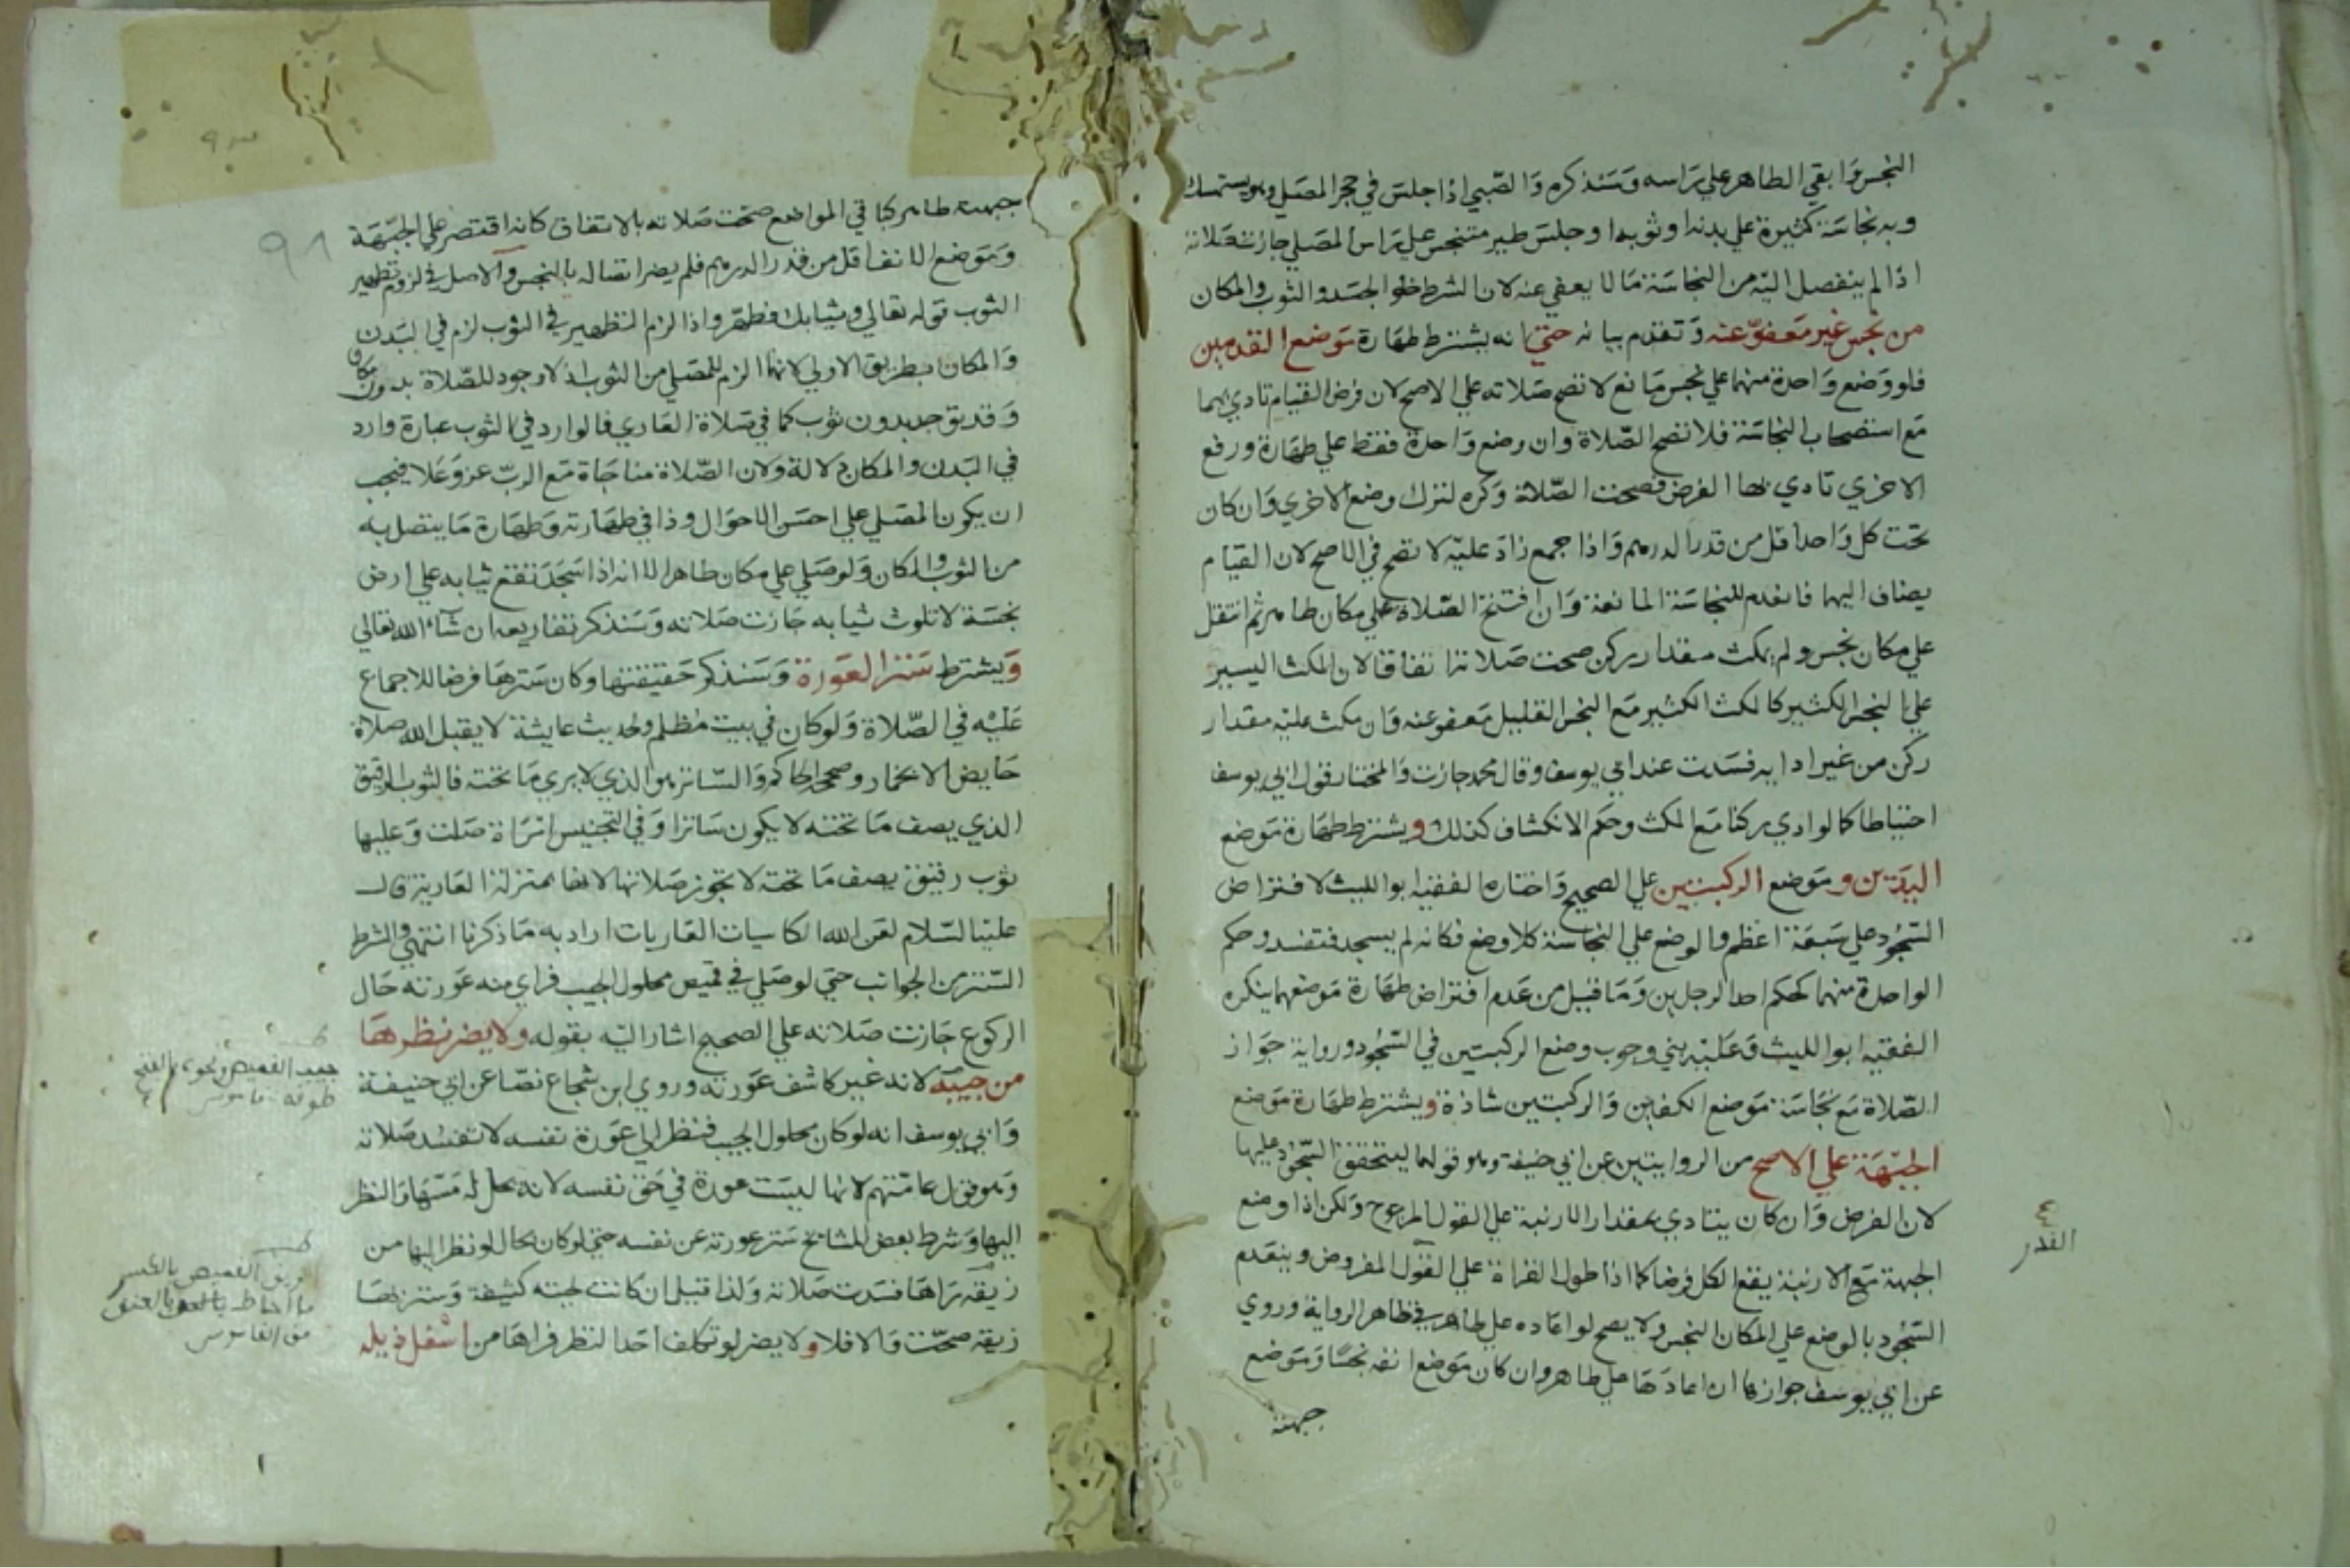 النجس وابقي الطاهر علي راسه وسنذكره والصبي اذا جلس في حجر المصلي وهو يستمسك
وبه نجاسة كثيرة علي بدنه او ثوبه او جلس طير متنجس علي راس المصلي جازت صلاته
اذا لم ينفصل اليه من النجاسة ما لا يعفي عنه لان الشرط خلو الجسد والثوب والمكان
من نجس غير معفو عنه وتقدم بيانه حتي انه يشترط طهارة موضع القدمين
فلو وضع واحدة منهما علي نجس مانع لا تصح صلاته علي الاصح لان فرض القيام تادي بهما
مع استصحاب النجاسة فلا تصح الصلاة وان وضع واحدة فقط علي طهارة ورفع
الاخري تادي بها الفرض فصحت الصلاة وكره لترك وضع الاخري وان كان
تحت كل واحد اقل من قدر الدرهم واذا جمع زاد عليه لا تصح في الاصح لان القيام
يضاف اليهما فانعدم للنجاسة المانعة وان افتتح الصلاة علي مكان طاهر ثم انتقل
علي مكان نجس ولم يمكث مقدار ركن صحت صلاته اتفاقا لان المكث اليسير
علي النجس الكثير كالمكث الكثير مع النجس القليل معفو عنه وان مكث عليه مقدار
ركن من غير ادايه فسدت عند ابي يوسف وقال محمد جازت والمختار قول ابي يوسف
احتياطا كما لو ادي ركنا مع المكث وحكم الانكشاف كذلك ويشترط طهارة موضع
اليدين وموضع الركبتين علي الصحيح واختاره الفقيه ابو الليث لافتراض
السجود علي سبعة اعظم والوضع علي النجاسة كلا وضع فكانه لم يسجد فتفسد وحكم
الواحدة منهما كحكم احد الرجلين وما قيل من عدم افتراض طهارة موضعهما ينكره
الفقيه ابو الليث وعليه يبني وجوب وضع الركبتين في السجود ورواية جواز
الصلاة مع نجاسة موضع الكفين والركبتين شاذة ويشترط طهارة موضع
الجبهة علي الاصح من الروايتين عن ابي حنيفة وهو قولهما ليتحقق السجود عليها
لان الفرض وان كان يتادي بمقدار الارنبة علي القول المرجوح ولكن اذا وضع
الجبهة مع الارنبة يقع الكل فرضا كما اذا طول القراة علي القول المفروض وينعدم
السجود بالوضع علي المكان النجس ولا يصح لو اعاده علي طاهر في ظاهر الرواية وروي
عن ابي يوسف جوازها ان اعادها علي طاهر وان كان موضع انفه نجسا وموضع
جبهته
القدر
جبهته طاهر كباقي المواضع صحت صلاته بالاتفاق كانه اقتصر علي الجبهة
وموضع الانف اقل من قدر الدرهم فلم يضر اتصاله بالنجس والاصل في لزوم تطهير
الثوب قوله تعالي وثيابك فطهر واذا لزم التطهير في الثوب لزم في البدن
والمكان بطريق الاولي لانهما الزم للمصلي من الثوب اذ لا وجود للصلاة بدون مكان
وقد يوجد بدون ثوب كما في صلاة العاري فالوارد في الثوب عبارة وارد
في البدن والمكان دلالة ولان الصلاة مناجاة مع الرب عز وعلا فيجب
ان يكون المصلي علي احسن الاحوال وذا في طهارته وطهارة ما يتصل به
من الثوب والمكان ولو صلي علي مكان طاهر الا انه اذا سجد تقع ثيابه علي ارض
نجسة لا تلوث ثيابه جازت صلاته وسنذكر تفاريعه ان شاء الله تعالي
ويشترط ستر العورة وسنذكر حقيقتها وكان سترها فرضا للاجماع
عليه في الصلاة ولو كان في بيت مظلم ولحديث عايشة لا يقبل الله صلاة
حايض الا بخمار وصححه الحاكم والساتر هو الذي لا يري ما تحته فالثوب الرقيق
الذي يصف ما تحته لا يكون ساترا وفي التجنيس امراة صلت وعليها
ثوب رقيق يصف ما تحته لا تجوز صلاتها لانها بمنزلة العارية قال
عليه السلام لعن الله الكاسيات العاريات اراد به ما ذكرنا انتهي والشرط
الستر من الجوانب حتي لو صلي في قميص محلول الجيب فراي منه عورته حال
الركوع جازت صلاته علي الصحيح اشار اليه بقوله ولا يضر نظرها
من جيبه لانه غير كاشف عورته وروي ابن شجاع نصا عن ابي حنيفة
وابي يوسف انه لو كان محلول الجيب فنظر الي عورة نفسه لا تفسد صلاته
وهو قول عامتهم لانها ليست عورة في حق نفسه لانه يحل له مسها والنظر
اليها وشرط بعض المشايخ ستر عورته عن نفسه حتي لو كان بحال لو نظر اليها من
زيقه راها فسدت صلاته ولذا قيل ان كانت لحيته كثيفة وستر بها
زيقه صحت والا فلا ولا يضر لو تكلف احد النظر فراها من اسفل ذيله
جيب القميص ونحوه بالفتح
طوقه قاموس
زيق القميص بالكسر
ما احاط بالعنق
من القاموس